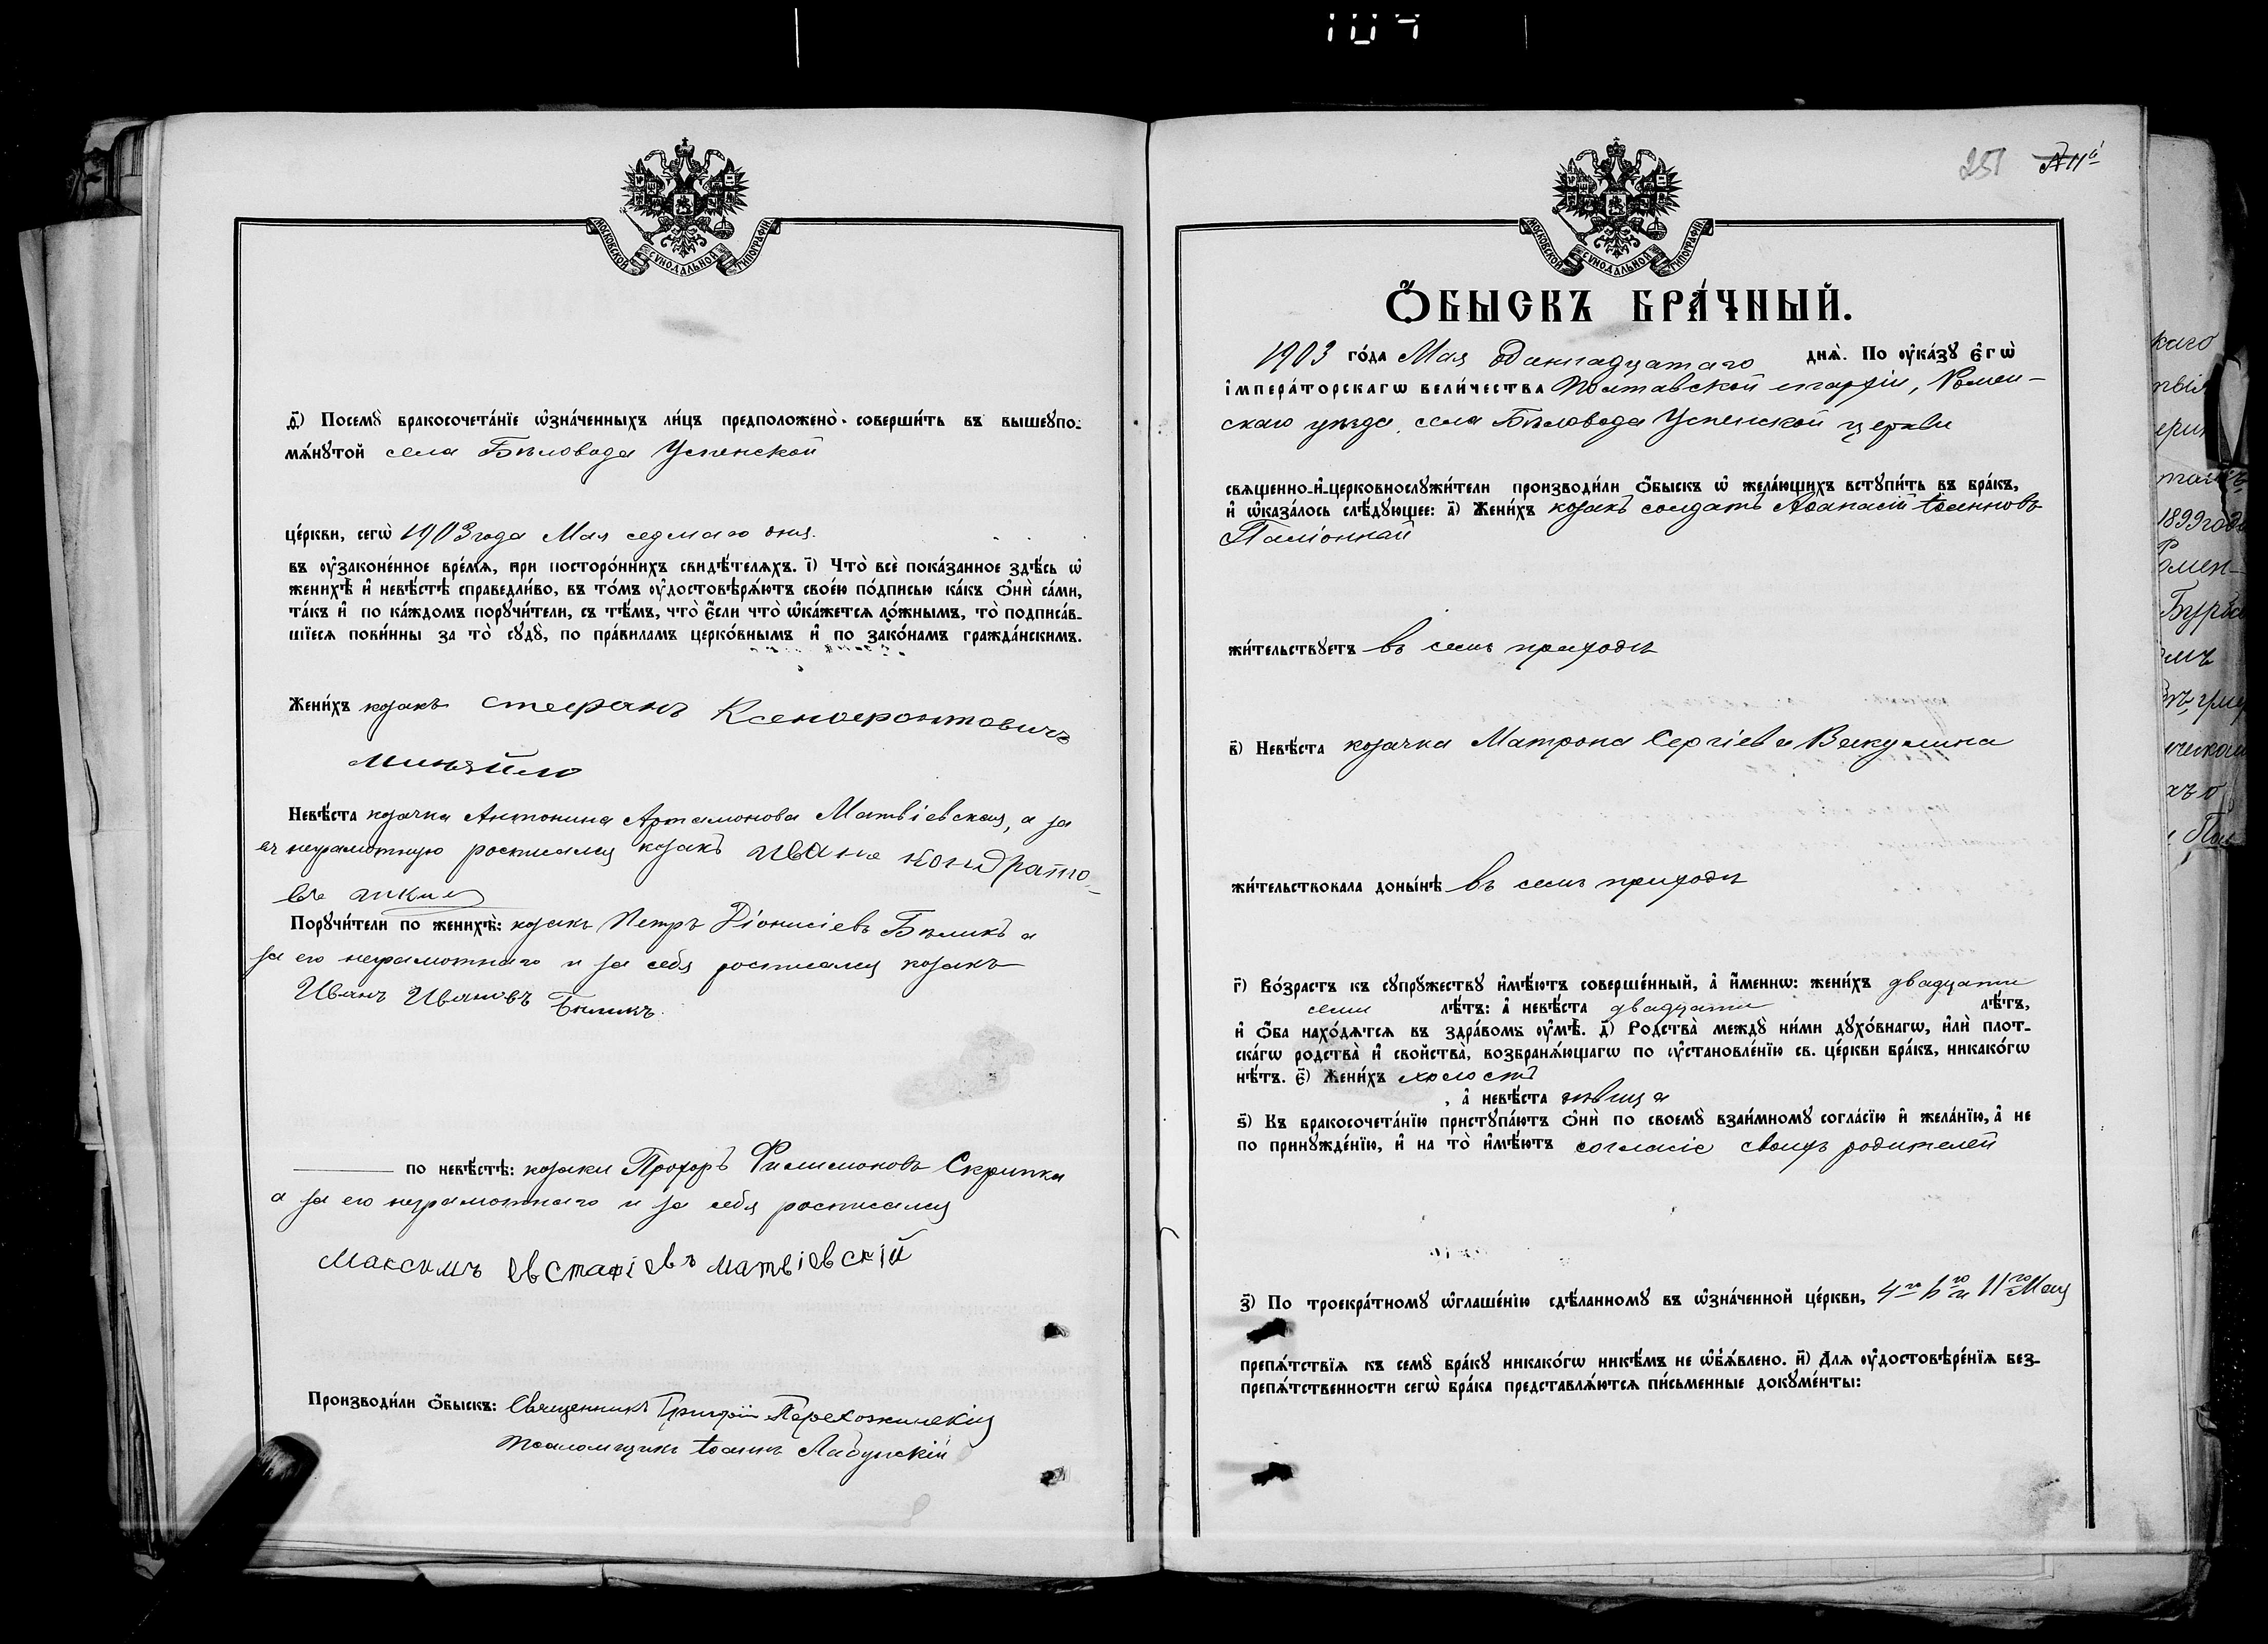 104
МОСКОВСКОЙ СѴНОДАЛЬНОЙ ТИПОГРАФІИ
ѳ҃) Посемꙋ̀ бракосочета́нїе ѡ҆зна́ченныхъ ли́цъ предположено̀ совершѝть въ вышеꙋпо-
мѧ́нꙋтой села Бѣловода Успенской
це́ркви, сегѡ̀ 1903 года Мая седмаго дня.
въ ᲂу҆зако́ненное вре́мѧ, при посторо́ннихъ свидѣ́телѧхъ. і҃) Что̀ всѐ пока́занное здѣ́сь ѡ҆
женихѣ̀ и҆ невѣ́стѣ справедли́во, въ то́мъ ᲂу҆достовѣрѧ́ютъ свое́ю по́дписью ка́къ ѻ҆нѝ са́ми,
та́къ и҆ по ка́ждомъ порꙋчи́тели, съ тѣ́мъ, что̀ є҆́сли что̀ ѡ҆ка́жетсѧ ло́жнымъ, то̀ подписа́в-
шїесѧ пови́нны за то̀ сꙋдꙋ̀, по пра́виламъ церко́внымъ и҆ по зако́намъ гражда́нскимъ.
Жени́хъ козакъ Стефанъ Ксенофонтовичъ
Миняйло
Невѣ́ста козачка Антонина Артамонова Матвіевская, а за
ея неграмотную росписался козакъ Ивана Кондрато-
Порꙋчи́тели по женихѣ̀: козакъ Петръ Діонисіевъ Бѣликъ а
за его неграмотнаго и за себя росписался козакъ
Иванъ Ивановъ Биликъ
по невѣ́стѣ: козаки Прохоръ Филимоновъ Скрипка
а за его неграмотнаго и за себя росписался
Максимъ Евстафіевъ Матвіевскій
Производи́ли ѻ҆́быскъ: Священникъ Григорій
Псаломщикъ Іоаннъ Лабунскій
251
МОСКОВСКОЙ СѴНОДАЛЬНОЙ ТИПОГРАФІИ
Ѻ҆́БЫСКЪ БРА́ЧНЫЙ.
1903 го́да Мая одиннадцатаго днѧ̀. По ᲂу҆ка́зꙋ є҆гѡ̀
і҆мпера́торскагѡ вели́чества Полтавской епархіи, Ромен-
скаго уѣзда села Бѣловода Успенской церкви
свѧщенно-и҆-церковнослꙋжи́тели производи́ли ѻ҆́быскъ ѡ҆ жела́ющихъ встꙋпи́ть въ бра́къ,
и҆ ѡ҆каза́лось слѣ́дꙋющее: а҃) Жени́хъ козакъ солдатъ Аѳанасій Іоанновъ
жи́тельствꙋетъ въ семъ приходѣ
в҃) Невѣ́ста козачка Матрона Сергіева Вакулина
жи́тельствовала доны́нѣ въ семъ приходѣ
г҃) Во́зрастъ къ сꙋпрꙋ́жествꙋ и҆мѣ́ютъ соверше́нный, а҆ и҆́меннѡ: жени́хъ двадцати
семи лѣ́тъ: а҆ невѣ́ста двадцати лѣ́тъ,
и҆ ѻ҆́ба нахо́дѧтсѧ въ здра́вомъ ᲂу҆мѣ̀. д҃) Родства̀ междꙋ̀ ни́ми дꙋхо́внагѡ, и҆лѝ плот-
ска́гѡ родства̀ и҆ свойства̀, возбранѧ́ющагѡ по ᲂу҆становле́нїю св. це́ркви бра́къ, никако́гѡ
нѣ́тъ. є҃) Жени́хъ холостъ
, а҆ невѣ́ста дѣвица
ѕ҃) Къ бракосочета́нїю пристꙋпа́ютъ ѻ҆нѝ по своемꙋ̀ взаи́мномꙋ согла́сїю и҆ жела́нїю, а҆ не
по принꙋжде́нїю, и҆ на то̀ и҆мѣ́ютъ согласіе своихъ родителей
з҃) По троекра́тномꙋ ѡ҆глаше́нїю сдѣ́ланномꙋ въ ѡ҆зна́ченной це́ркви, 4го 6го и 11го Мая
препѧ́тствїѧ къ семꙋ̀ бра́кꙋ никако́гѡ никѣ́мъ не ѡ҆б̾ѧ́влено. и҃) Длѧ ᲂу҆достовѣре́нїѧ без-
препѧ́тственности сегѡ̀ бра́ка представлѧ́ютсѧ пи́сьменные докꙋме́нты:
каго
1899 года
Ромен-